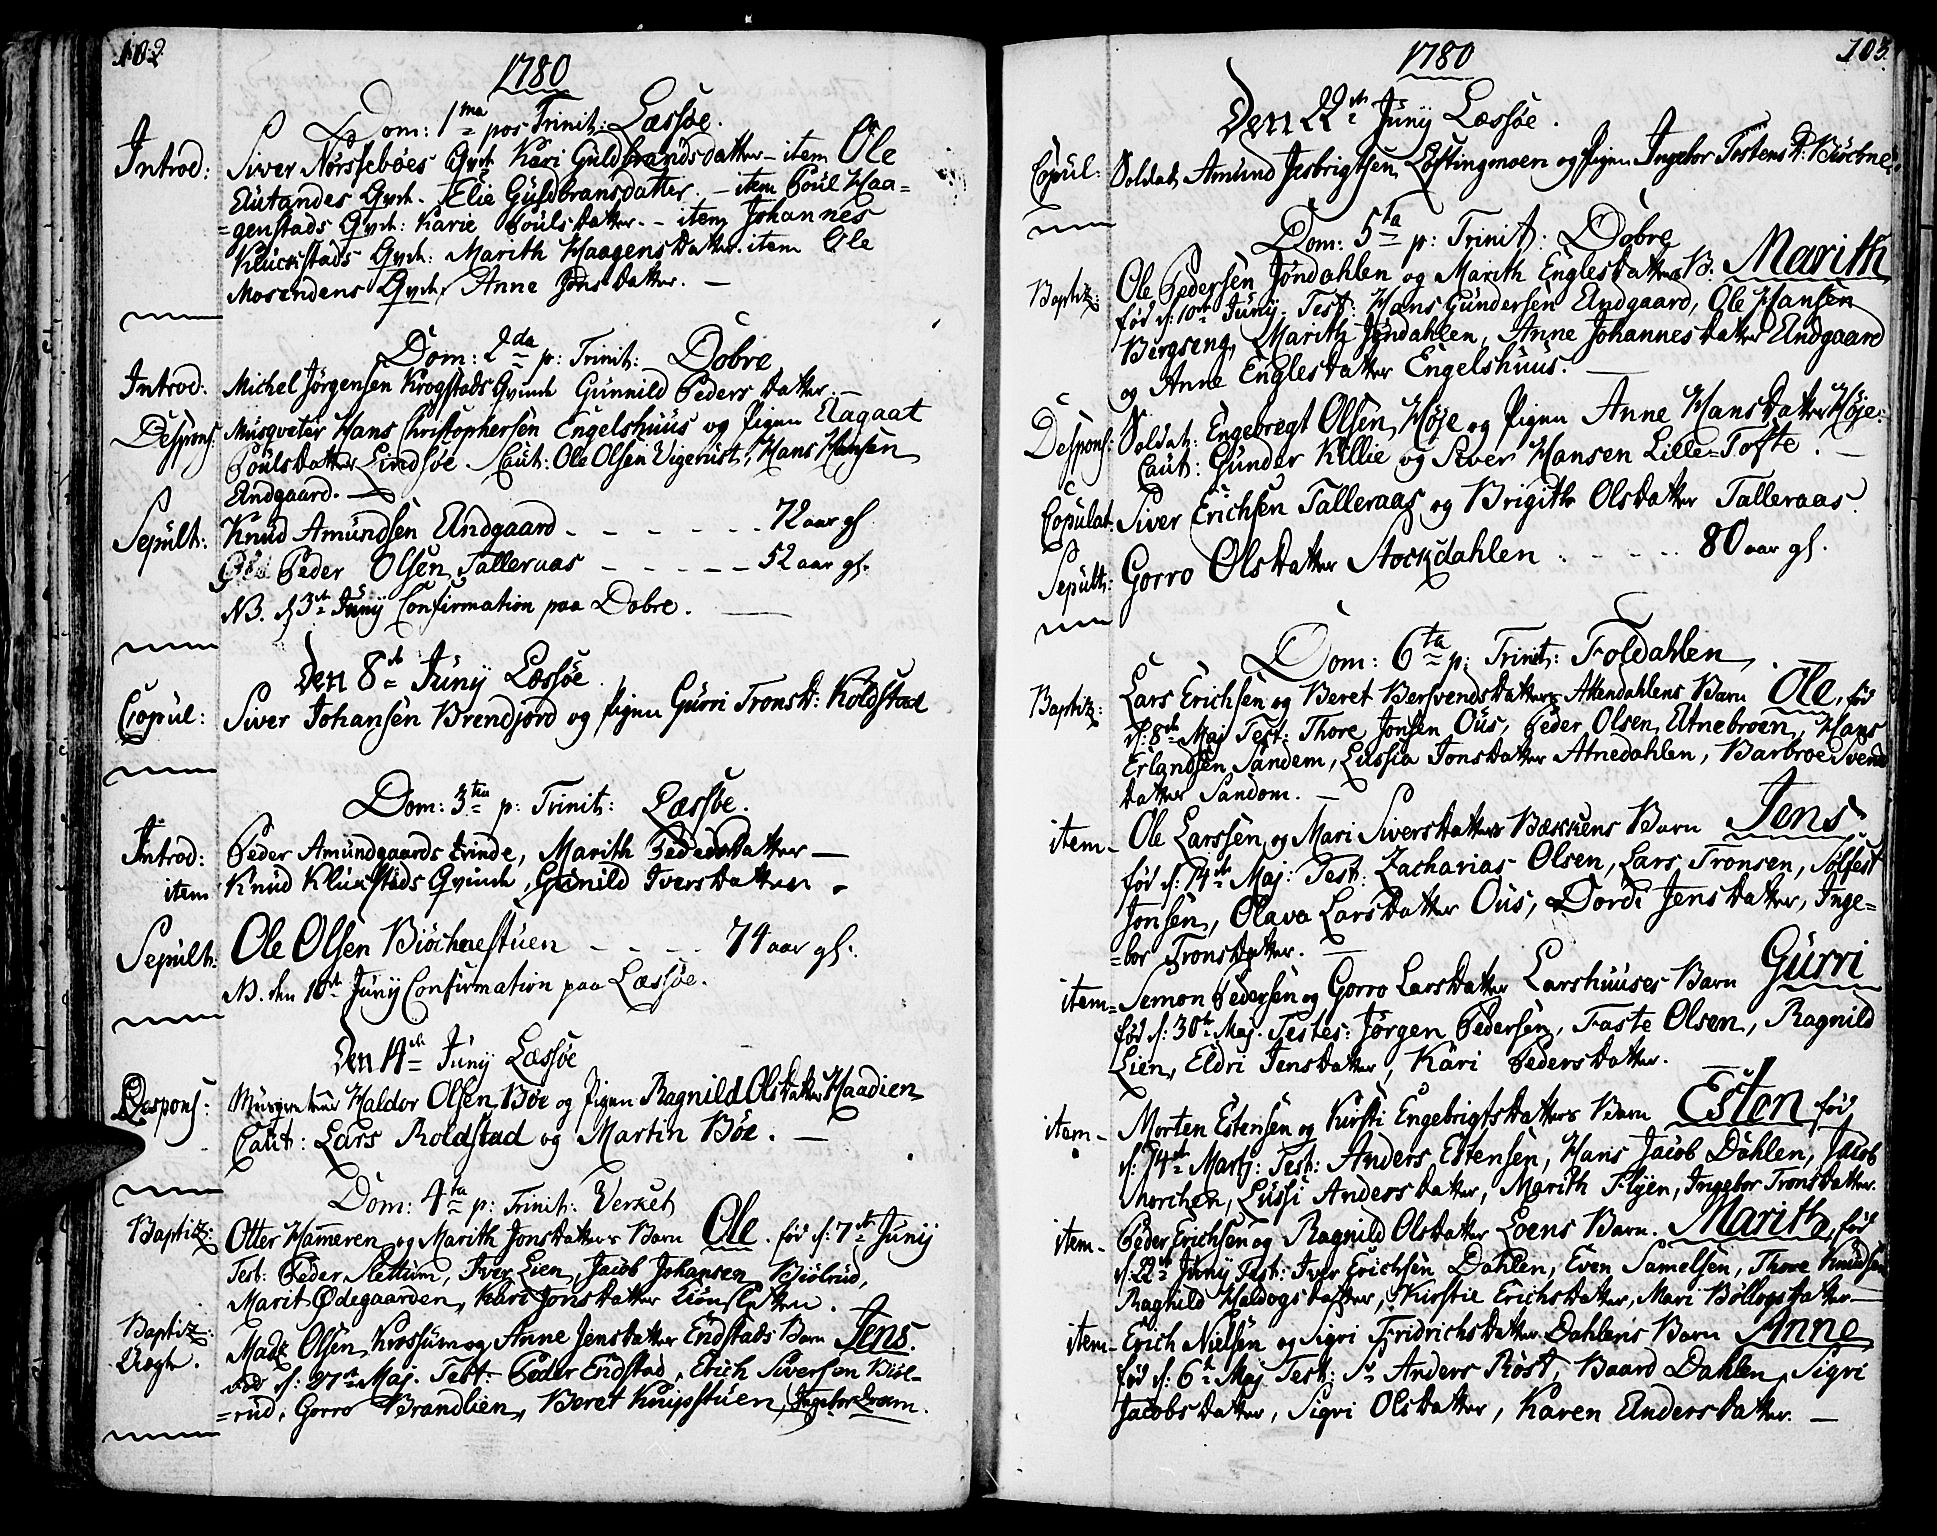 102
1780
Dom: 1ma pos Trinit: Læssøe.
Introd: Siver Norstebøes Qvd. Kari Guldbrandsdatter - item Ole
Qvd. Elie Guldbransdatter. - item Poul Haa=
=genstads Qvd: Karie Poulsdatter. - item Johannes
Kluckstads Qvd: Marith Haagensdatter. item Ole
Mosendens Qvd, Anne Jonsdatter. -
Dom: 2da p: Trinit: Dobre
Introd: Michel Jørgensen Krogstads Qvinde Gunnild Pedersdatter. -
Despons: Musqveter Hans Christophersen Engelshuus og Pigen Aagaat
Poulsdatter Lindsøe Caut: Ole Olsen Vigerust, Hans Hansen
Andgaard. -
Sepult: Knud Amundsen Andgaard - - - - - - - 72 aar gl.
Peder Olsen Talleraas - - - - - 52 aar gl.
NB. d. 3de Junij Confirmation paa Dobre. -
Den 8de Junij Læssøe.
Copul: Siver Johansen Brendjord og Pigen Gurri Tronsd: Koldstad
Dom: 3tia p: Trinit: Læssøe.
Introd: Peder Amundgaards Qvinde, Marith Pedersdatter -
item Knud Kluckstads Qvinde, Gunild Iversdatter -
Sepult: Ole Olsen Biøchnestuen - - - - 74 aar gl.
N. den 10de Junij Confirmation paa Læssøe.
Den 14de Junij Læssøe
Despons: Musqveteer Haldor Olsen Bøe og Pigen Ragnild Olsdatter Haadien
Caut: Lars Roldstad og Martin Bøe. -
Dom: 4ta p: Trinit: Verket
Baptiz: Otter Hameren og Marith Jonsdatters Barn Ole. fød d: 7de Junij
Test: Peder Slettum, Iver Lien, Jacob Johansen Kiølrud,
Marit Ødegaarden, Kari Jonsdatter Liønsletten.
Baptiz: Madz Olsen Krossum og Anne Jensdatter Endstads Barn Jens.
Uægte. fød d: 27de Maj. Test: Peder Endstad, Erich Siversen Kiøl=
=rud, Gorro Brandlien, Beret Kripstuen, Ingebor
103.
1780
Den 22de Junij Læssøe.
Copul: Soldat Amund Jesbrigtsen Løftingmoen og Pigen Ingebor Tostens D: Biøchne.
Dom: 5ta p: Trinit: Dobre
Baptiz: Ole Pedersen Jøndahlen og Marith Englesdatters B: Marith
fød d: 10de Junij. Test: Hans Gundersen Andgaard, Ole Hansen
Bergseng, Marith Jøndahlen, Anne Johannesdatter Andgaard
og Anne Englesdatter Engelshuus. -
Despons: Soldat: Engebregt Olsen Høje og Pigen Anne Hansdatter Høje:
Caut: Gunder Killie og Siver Hansen Lille=Tofte. -
Copulat: Siver Erichsen Talleraas og Brigithe Olsdatter Talleraas.
Sepult: Gorro Olsdatter Stockdahlen . - - - - - 80 aar gl.
Dom: 6ta p: Trinit: Foldahlen.
Baptiz: Lars Erichsen og Beret Bersvendsdatters Attendahlens Barn Ole, fød
d: 8de Maj Test: Thore Jonsen Ous, Peder Olsen Atnebroen, Hans
Erlandsen Sandem, Lussia Jonsdatter Atnedahlen, Barbroe Svends
datter Sandom. -
item - Ole Larssen og Mari Siversdatters Bækkens Barn Jens
fød d: 14de Maj: Test: Zacharias Olsen, Lars Tronsen, Solfest
Jonsen, Olava Larsdatter Ous, Dordi Jensdatter, Inge=
=bor Tronsdatter. -
item - Semon Pedersen og Gorro Larsdatter Larshuuses Barn Gurri
fød d: 30te Maj. Testes: Jørgen Pedersen, Faste Olsen, Ragnild
Lien, Eldri Jensdatter, Kari Pedersdatter.
item - Morten Estensen og Kirsti Engebrigtsdatters Barn Esten fød
d: 14de Martj: Test: Anders Estensen, Hans Jacob Dahlen, Jacob
Morchen, Lussi Andersdatter, Marith Flyen, Ingebor Tronsdatter.
item - Peder Erichsen og Ragnild Olsdatter Loens Barn. Marith, fød
d: 22de Junij Test: Iver Erichsen Dahlen, Even Samelsen, Thore Knudsen
Ragnild Haldogsdatter, Kirstie Erichsdatter, Mari Bøllogsdatter -
item - Erich Nielsen og Sigri Fridrichsdatter Dahlens Barn Anne
fød d: 6te Maj Test: Sr Anders Røst, Baard Dahlen, Sigri
Jacobsdatter, Sigri Olsdatter, Karen Andersdatter. -